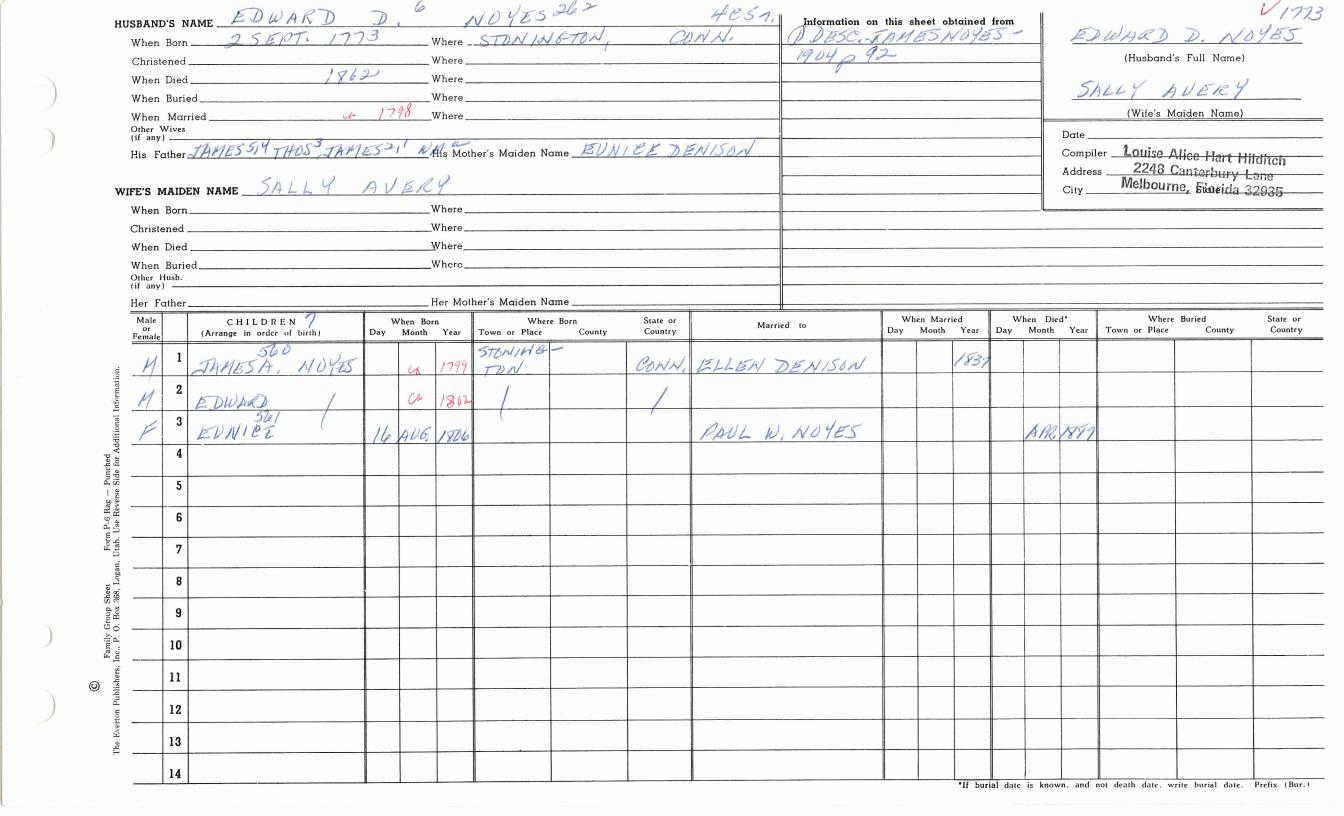 HUSBAND'S NAME EDWARD D. 6 NOYES 262
When Born 2 SEPT. 1773 Where STONINGTON, CONN.
Christened Where
When Died 1862 Where
When Buried Where
When Married ca 1798 Where
Other Wives
(if any)
His Father JAMES 5,4 THOS 3 JAMES 2,1 His Mother's Maiden Name EUNICE DENISON
WIFE'S MAIDEN NAME SALLY AVERY
When Born Where
Christened Where
When Died Where
When Buried Where
Other Husb.
(if any)
Her Father Her Mother's Maiden Name
Information on this sheet obtained from
① DESC. JAMES NOYES -
1904 p 92
✓ 1773
EDWARD D. NOYES
(Husband's Full Name)
SALLY AVERY
(Wife's Maiden Name)
Date
Compiler Louise Alice Hart Hilditch
Address 2248 Canterbury Lane
City Melbourne, Florida 32935
Male or Female
CHILDREN 7
(Arrange in order of birth)
When Born
Day Month Year
Where Born
Town or Place County
State or Country
Married to
When Married
Day Month Year
When Died*
Day Month Year
Where Buried
Town or Place County
State or Country
M 1 JAMES A. 560 NOYES ca 1799 STONING-TON CONN. ELLEN DENISON 1837
M 2 EDWARD / ca 1802 / /
F 3 EUNICE 561 16 AUG. 1806 PAUL W. NOYES APR. 1887
4
5
6
7
8
9
10
11
12
13
14
*If burial date is known, and not death date, write burial date. Prefix (Bur.)
Family Group Sheet Form P-6 Rag — Punched
© The Everton Publishers, Inc., P. O. Box 368, Logan, Utah. Use Reverse Side for Additional Information.